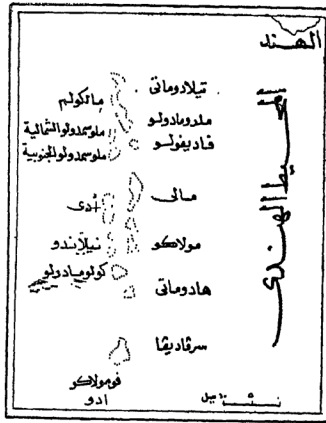 الهند
المحيط الهندى
تيلادوماتى
ملدومادولو
ملوسمدولوالشمالية
فاديفولو
ملوسمدولوالجنوبية
مالى
أدى
مولاكو
نيلاندو
كولومادولو
هادوماتى
سرڤاديڤا
فومولاكو
ادو
ميل